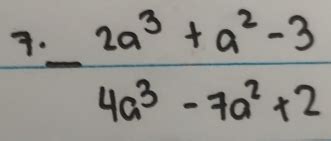 7. 2a³ + a² - 3
_ 4a³ - 7a² + 2